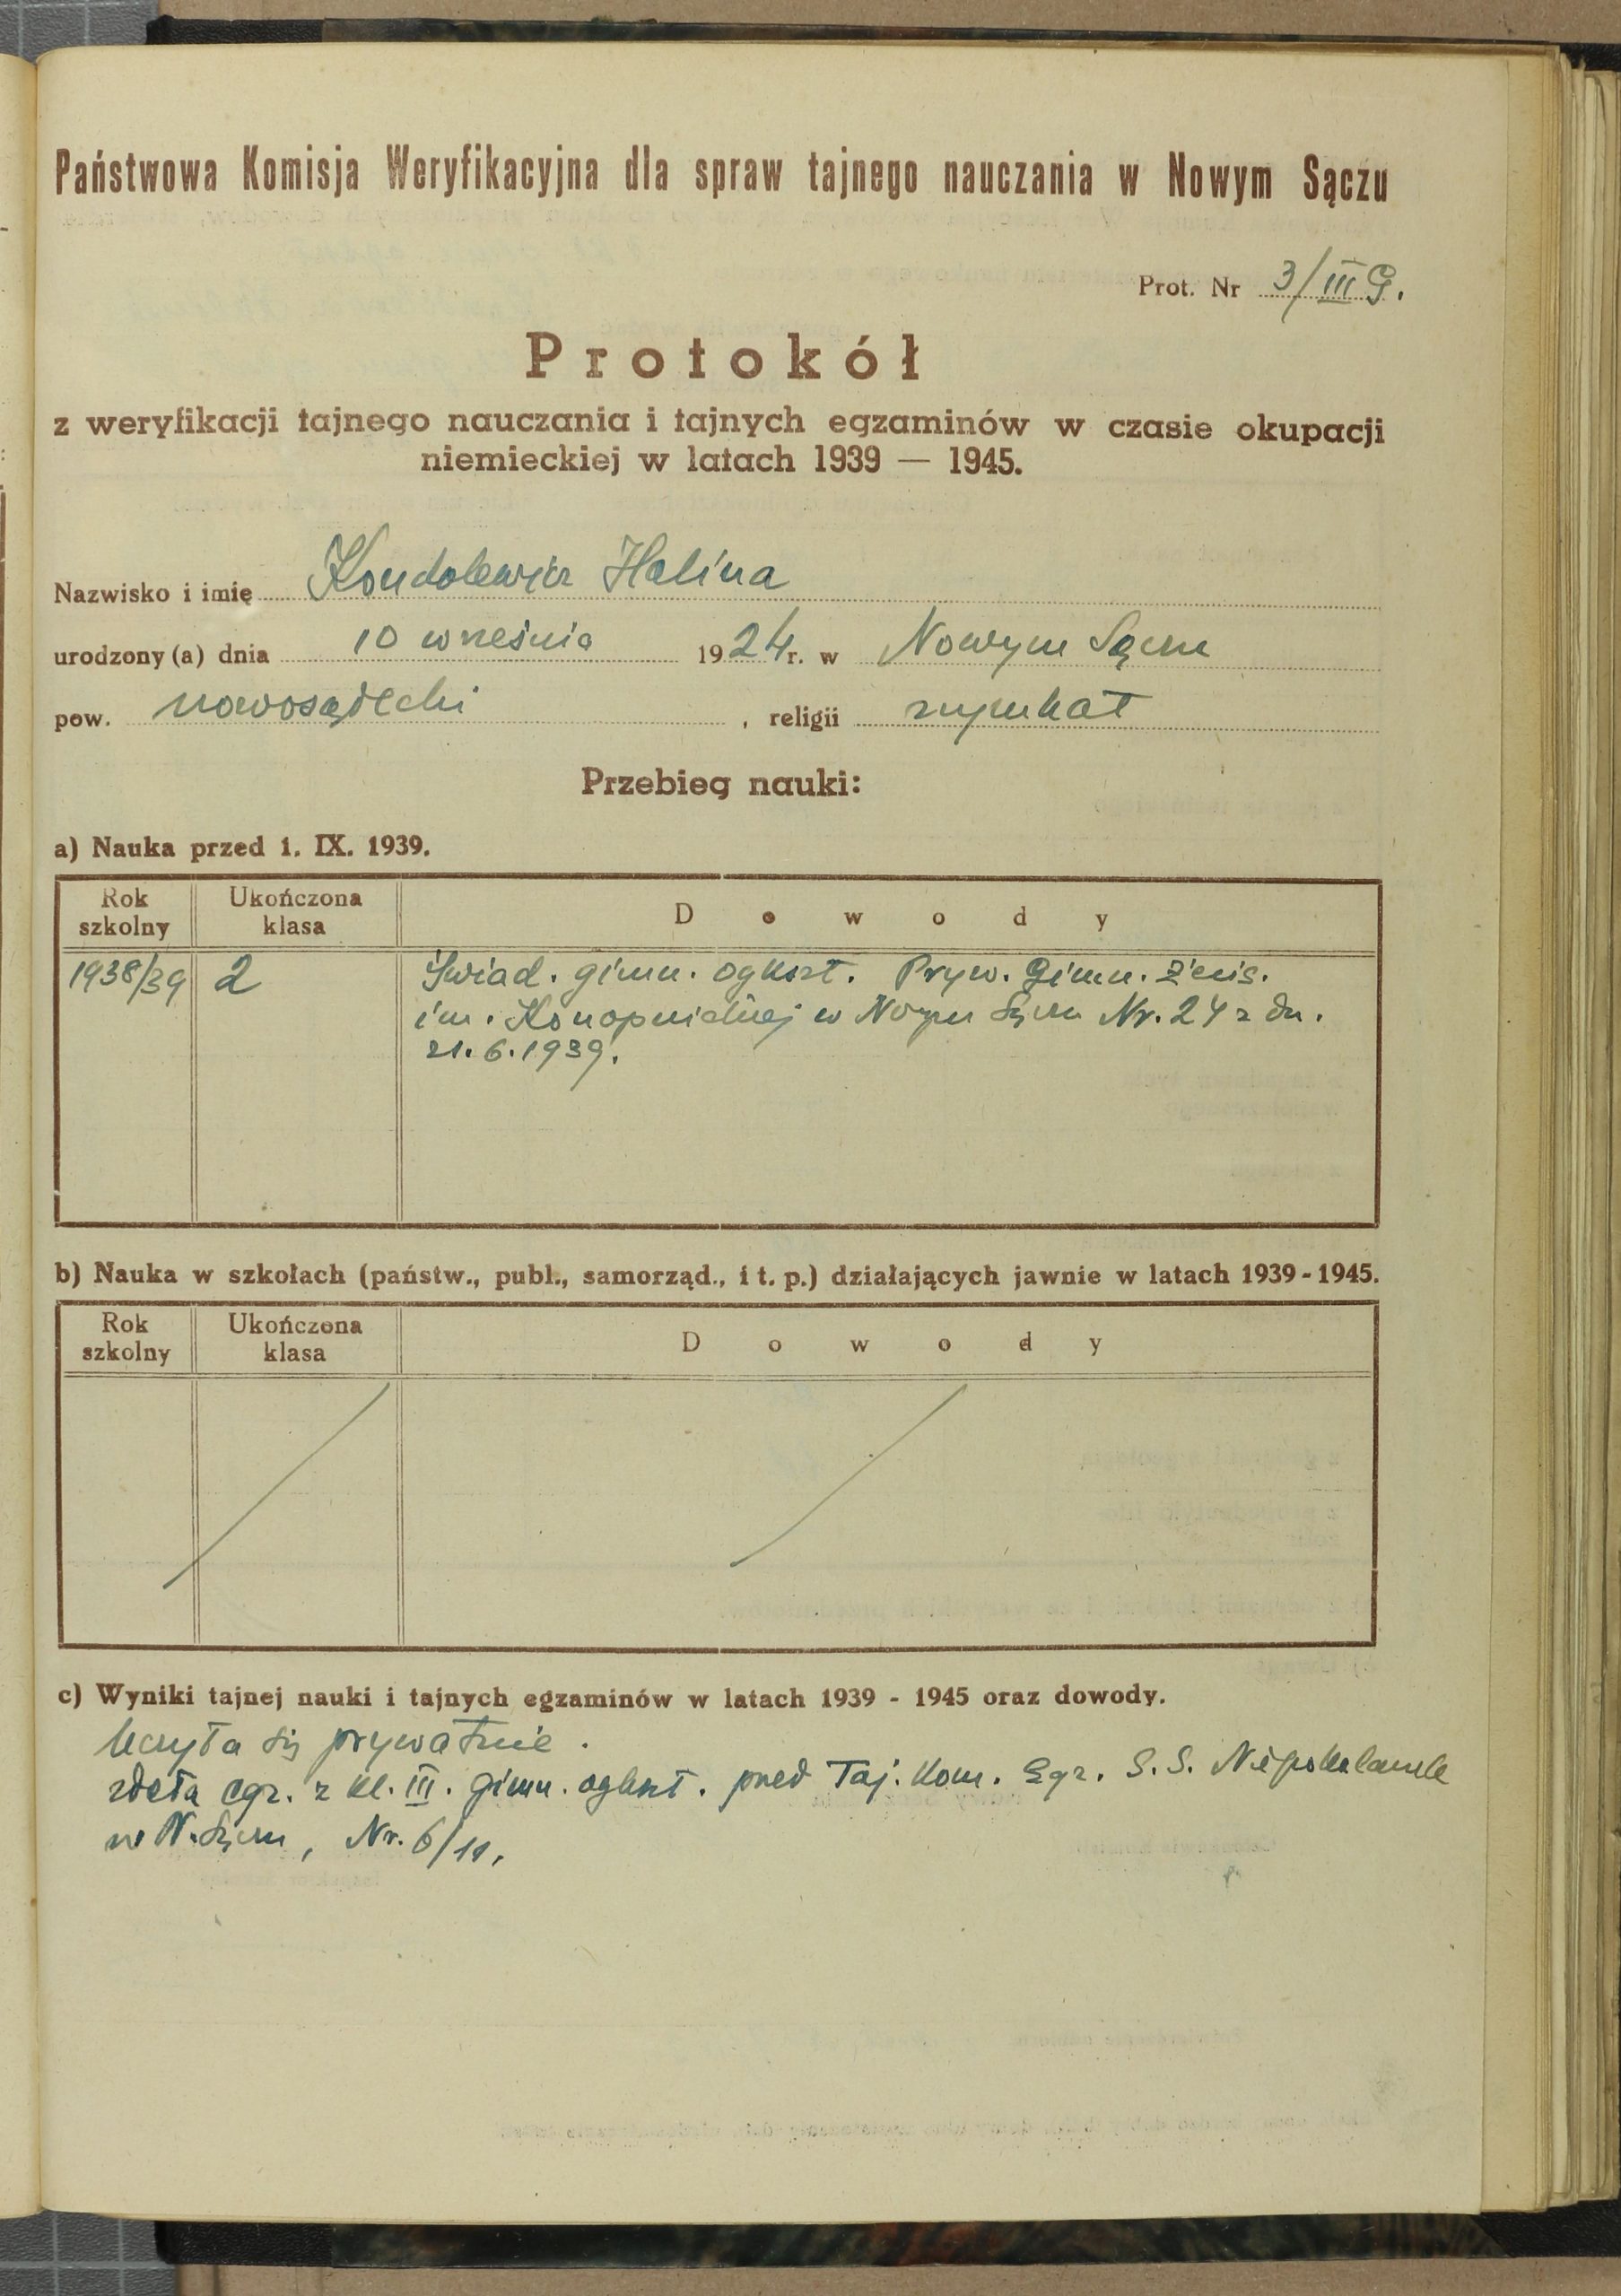 Państwowa Komisja Weryfikacyjna dla spraw tajnego nauczania w Nowym Sączu
Prot. Nr 3/III G.
Protokół
z weryfikacji tajnego nauczania i tajnych egzaminów w czasie okupacji
niemieckiej w latach 1939 — 1945.
Nazwisko i imię Kondolewicz Halina
urodzony (a) dnia 10 września 1924 r. w Nowym Sączu
pow. nowosądecki , religii rzymkat
Przebieg nauki:
a) Nauka przed 1. IX. 1939.
Rok szkolny Ukończona klasa Dowody
1938/39 2 Świad. gimn. ogkszt. Pryw. Gimn. Żeńs.
im. Konopnickiej w Nowym Sączu Nr. 24 z dn.
21.6.1939.
b) Nauka w szkołach (państw., publ., samorząd., i t. p.) działających jawnie w latach 1939 - 1945.
Rok szkolny Ukończona klasa Dowody
c) Wyniki tajnej nauki i tajnych egzaminów w latach 1939 - 1945 oraz dowody.
Uczyła się prywatnie.
zdała egz. z kl. III. gimn. ogkszt. przed Taj. Kom. Egz. S.S. Niepokalanek
w N. Sączu, Nr. 6/11.